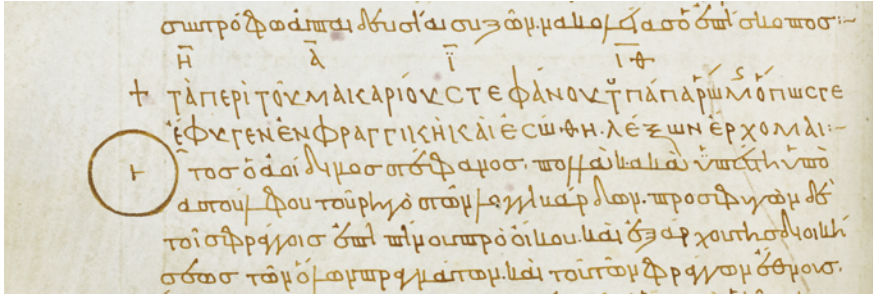 συντρόφω ἀπαιδευσίαι συζῶν. νακολείας ὁ ἐπίσκοπος:~
Η Α Ϊ ΙΘ
+ ΤᾺ ΠΕΡῚ ΤΟΥ ΜΑΚΑΡΊΟΥ ΣΤΕΦΆΝΟΥ ΤΟῦ ΠΆΠΑ ῬΏΜς ὍΠΩΣ ΤΕ
ἜΦΥΓΕΝ ἘΝ ΦΡΑΓΓΙΚΗΙ ΚΑῚ ἘΣΏΘΗ. ΛΈΞΩΝ ἜΡΧΟΜΑΙ:~
τος ὁ ἀοίδιμος στέφανος. πολλὰ κακὰ ὑπέστη ὑπὸ
αστούλφου τοῦ ρηγὸς τῶν λογγιβάρδων. προσφυγὼν δὲ
τοῖς φράγγοις ἐπὶ πιπίνου προοίκου. καὶ ἐξάρχου τῆς διοική
σεως τῶν ὅλων πραγμάτων. καὶ τοῦ τῶν φράγγων ἔθνους.